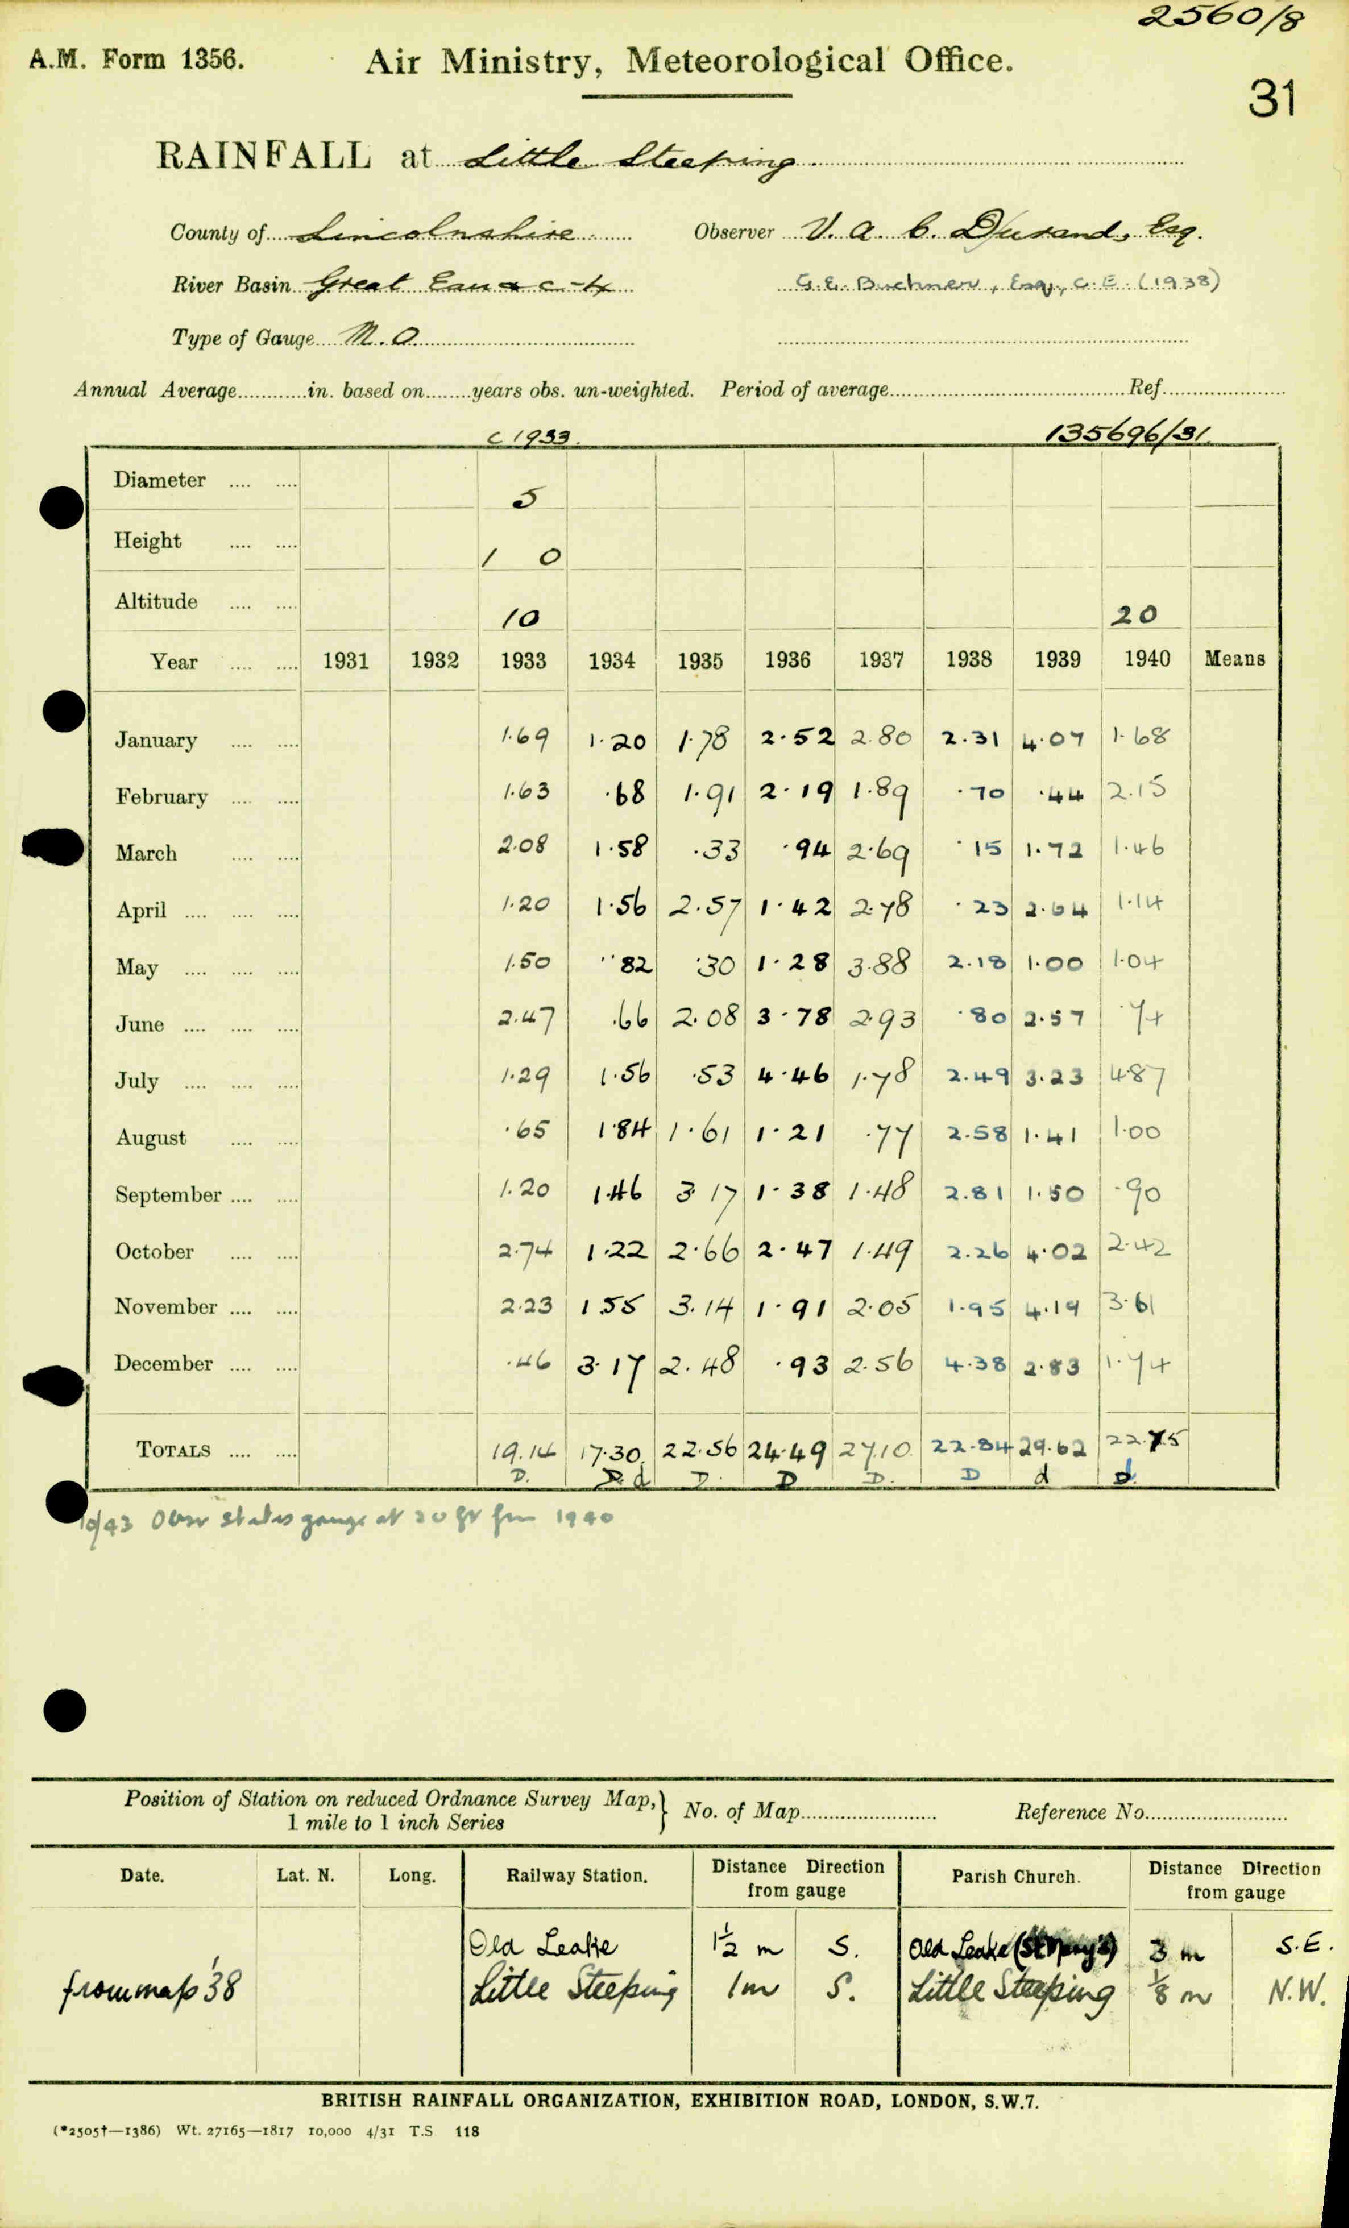 2560/8
A.M. Form 1356. Air Ministry, Meteorological Office.
31
RAINFALL at Little Steeping
County of Lincolnshire Observer V. A. C. Durand, Esq.
River Basin Great Eau &c - 4 G. E. Buchner, Esq., C.E. (1938)
Type of Gauge M.O.
Annual Average............in. based on........years obs. un-weighted. Period of average........ Ref........
C 1933 135696/31
Diameter .... .... 5
Height .... .... 1 0
Altitude .... .... 10 20
Year .... .... 1931 1932 1933 1934 1935 1936 1937 1938 1939 1940 Means
January .... .... 1.69 1.20 1.78 2.52 2.80 2.31 4.07 1.68
February .... .... 1.63 .68 1.91 2.19 1.89 .70 .44 2.15
March .... .... 2.08 1.58 .33 .94 2.69 .15 1.72 1.46
April .... .... .... 1.20 1.56 2.57 1.42 2.78 .23 2.64 1.14
May .... .... .... 1.50 .82 .30 1.28 3.88 2.18 1.00 1.04
June .... .... .... 2.47 .66 2.08 3.78 2.93 .80 2.57 .74
July .... .... .... 1.29 1.56 .53 4.46 1.78 2.49 3.23 4.87
August .... .... .65 1.84 1.61 1.21 .77 2.58 1.41 1.00
September .... .... 1.20 1.46 3.17 1.38 1.48 2.81 1.50 .90
October .... .... 2.74 1.22 2.66 2.47 1.49 2.26 4.02 2.42
November .... .... 2.23 1.55 3.14 1.91 2.05 1.95 4.19 3.61
December .... .... .46 3.17 2.48 .93 2.56 4.38 2.83 1.74
TOTALS .... .... 19.14 17.30 22.56 24.49 27.10 22.84 29.62 22.75
D. D. d D. D D. D d d.
10/43 Obsr states gauge at 20 ft from 1940
Position of Station on reduced Ordnance Survey Map, } No. of Map........ Reference No........
1 mile to 1 inch Series
Date. Lat. N. Long. Railway Station. Distance Direction from gauge Parish Church. Distance Direction from gauge
Old Leake 1½ m S. Old Leake (St Mary's) 3 m S.E.
from map '38 Little Steeping 1m S. Little Steeping ⅛ m N.W.
BRITISH RAINFALL ORGANIZATION, EXHIBITION ROAD, LONDON, S.W.7.
(*2505†—1386) Wt. 27165—1817 10,000 4/31 T.S 118